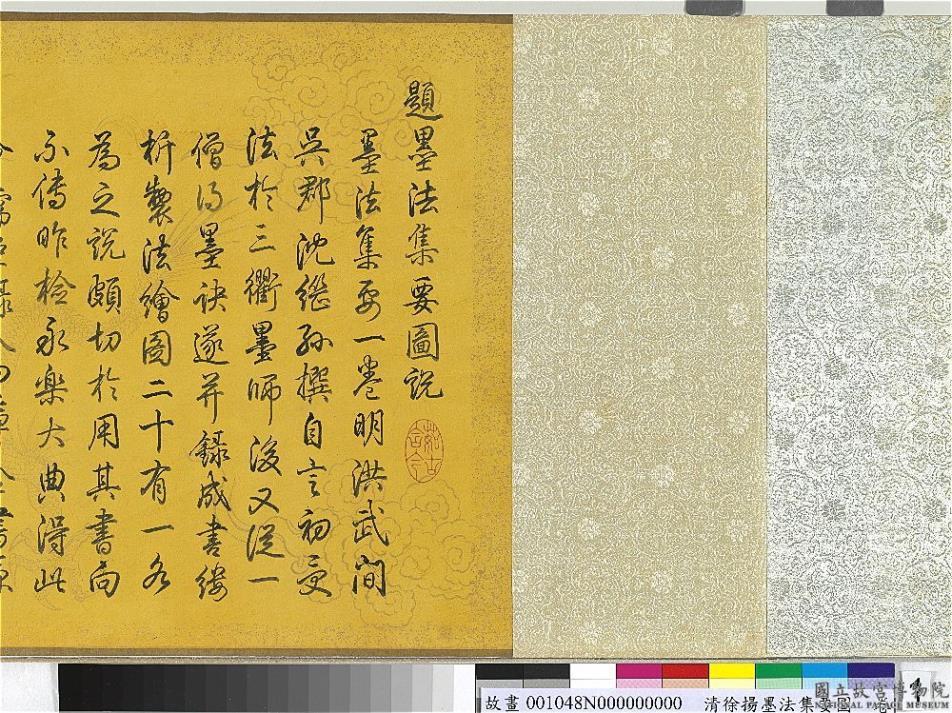 題墨法集要圖說
墨法集要一卷明洪武間
吳郡沈繼孫撰自言初受
法於三衢墨師後又從一
僧得墨訣遂并錄成書縷
析製法繪圖二十有一各
為之說頗切於用其書向
不傳昨檢永樂大典得此
茹古
含今
故畫 001048N000000000 清徐揚墨法集要圖
國立故宮博物院
NATIONAL PALACE MUSEUM